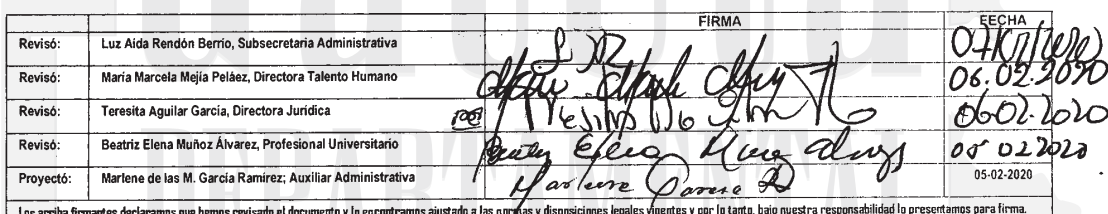 FIRMA FECHA
Revisó: Luz Aida Rendón Berrio, Subsecretaria Administrativa
Revisó: María Marcela Mejía Peláez, Directora Talento Humano 06.02.2020
Revisó: Teresita Aguilar García, Directora Jurídica 06-02-2020
Revisó: Beatriz Elena Muñoz Álvarez, Profesional Universitario Beatriz Elena Muñoz Alvarez 05 02 2020
Proyectó: Marlene de las M. García Ramírez; Auxiliar Administrativa Marlene Garcia R 05-02-2020
Los arriba firmantes declaramos que hemos revisado el documento y lo encontramos ajustado a las normas y disposiciones legales vigentes y por lo tanto, bajo nuestra responsabilidad lo presentamos para firma.